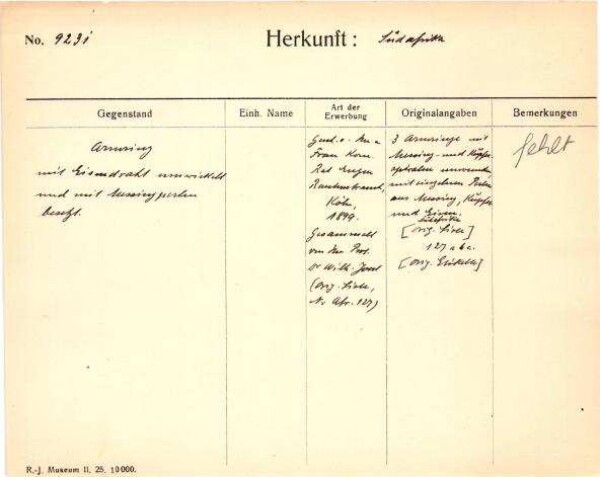 No. 9231
Herkunft: Südafrika
Gegenstand
Einh. Name
Art der Erwerbung
Originalangaben
Bemerkungen
Armring
mit Eisendraht umwickelt
und mit Messingperlen
besetzt.
Gesch. v. Hrn u
Frau Kom.
Rat Eugen
Rautenstrauch,
Köln,
1899.
Gesammelt
von Hrn Prof.
Dr Wilh. Joest
(orig. Liste,
Nr Afr. 127)
3 Armringe mit
Messing- und Kupfer-
spiralen umwunden,
mit einzelnen Perlen
aus Messing, Kupfer
und Eisen.
Südafrika
[orig. Liste]
127 a b c.
[orig. Etikette]
fehlt
R.-J. Museum II. 25. 10000.